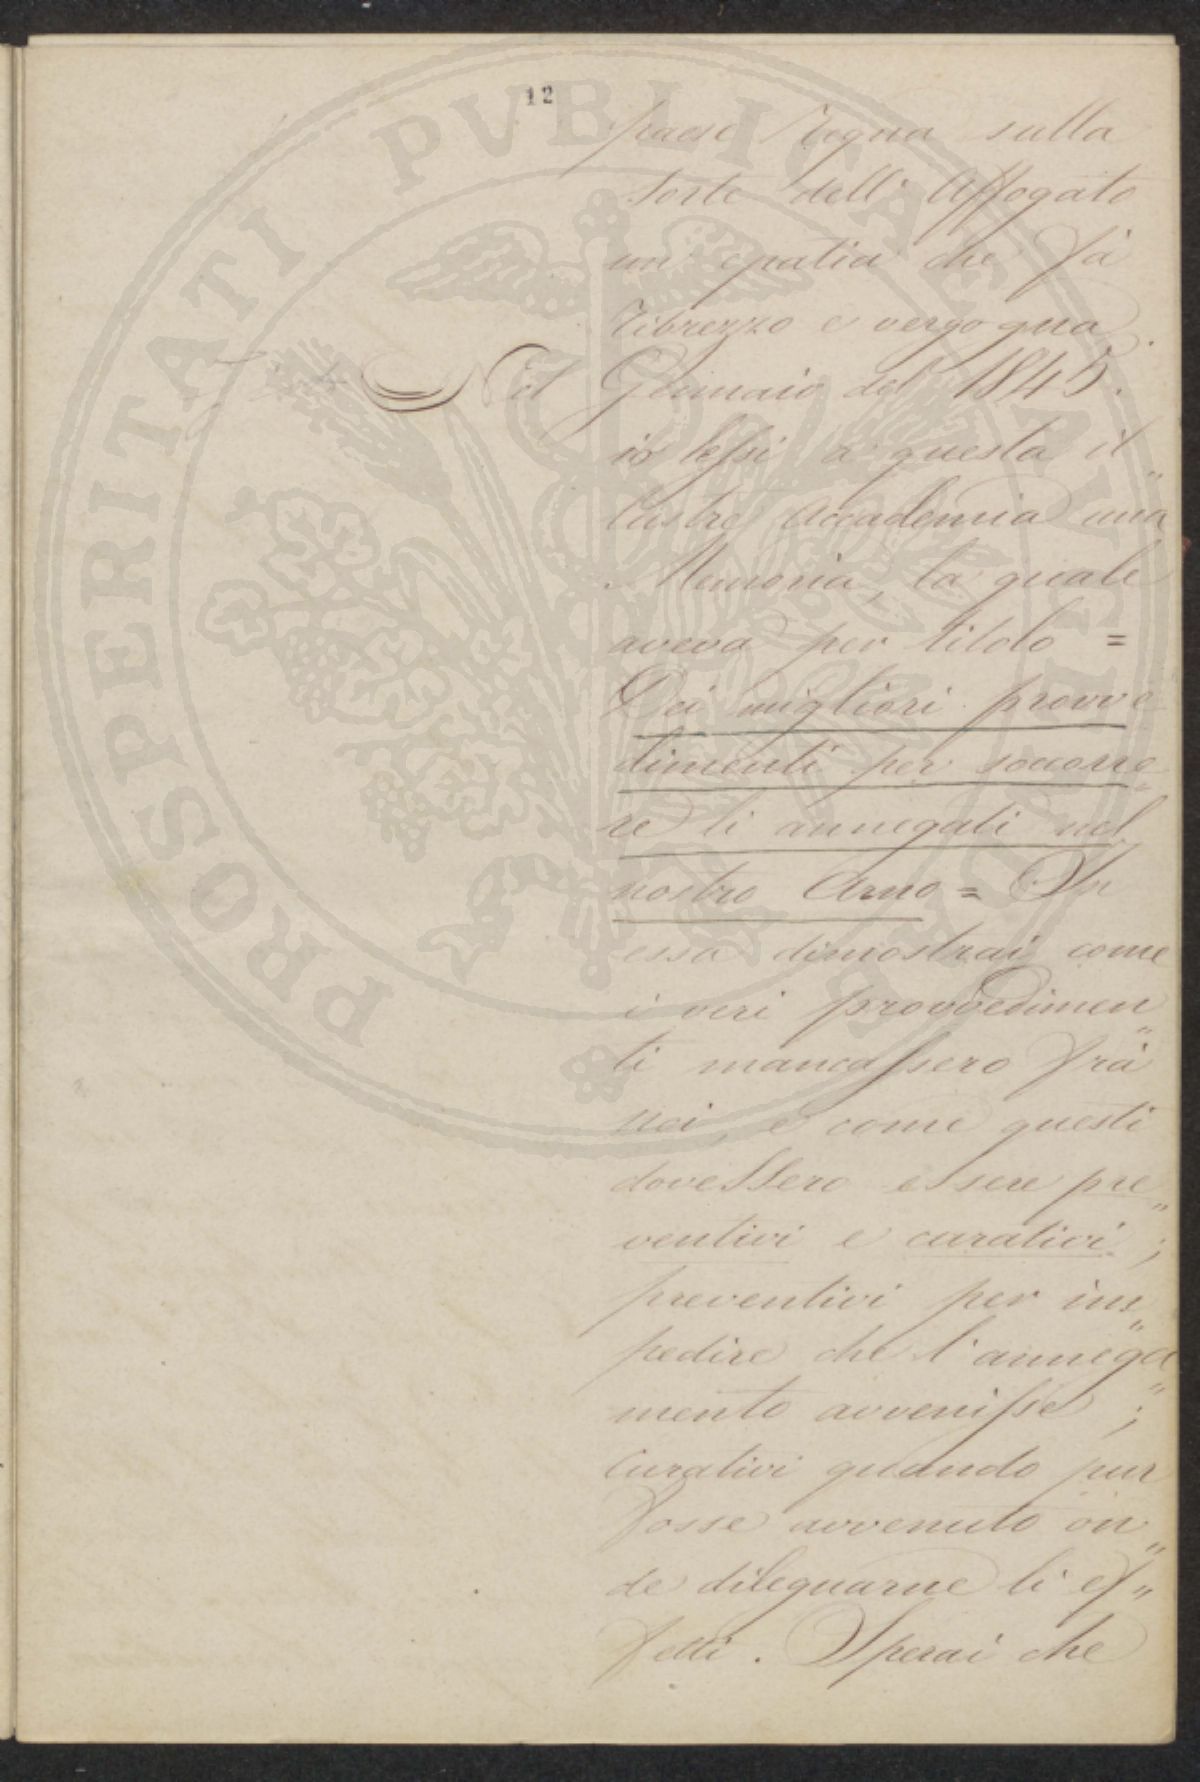 12
paese regna sulla
sorte dell'Affogato
un'apatia che fà
ribrezzo e vergogna.
Nel Gennaio del 1845.
io lessi a questa il„
lustre Accademia una
Memoria, la quale
aveva per titolo =
Dei migliori provve
dimenti per soccorre„
re li annegati nel
nostro Arno = In
essa dimostrai come
i veri provvedimen„
ti mancassero frà
noi, e come questi
dovessero essere pre„
ventivi e curativi;
preventivi per im„
pedire che l'annega„
mento avvenisse;
curativi quando pur
fosse avvenuto on„
de dileguarne li ef„
fetti. Sperai che
PROSPERITATI PVBLICAE AVGENDAE